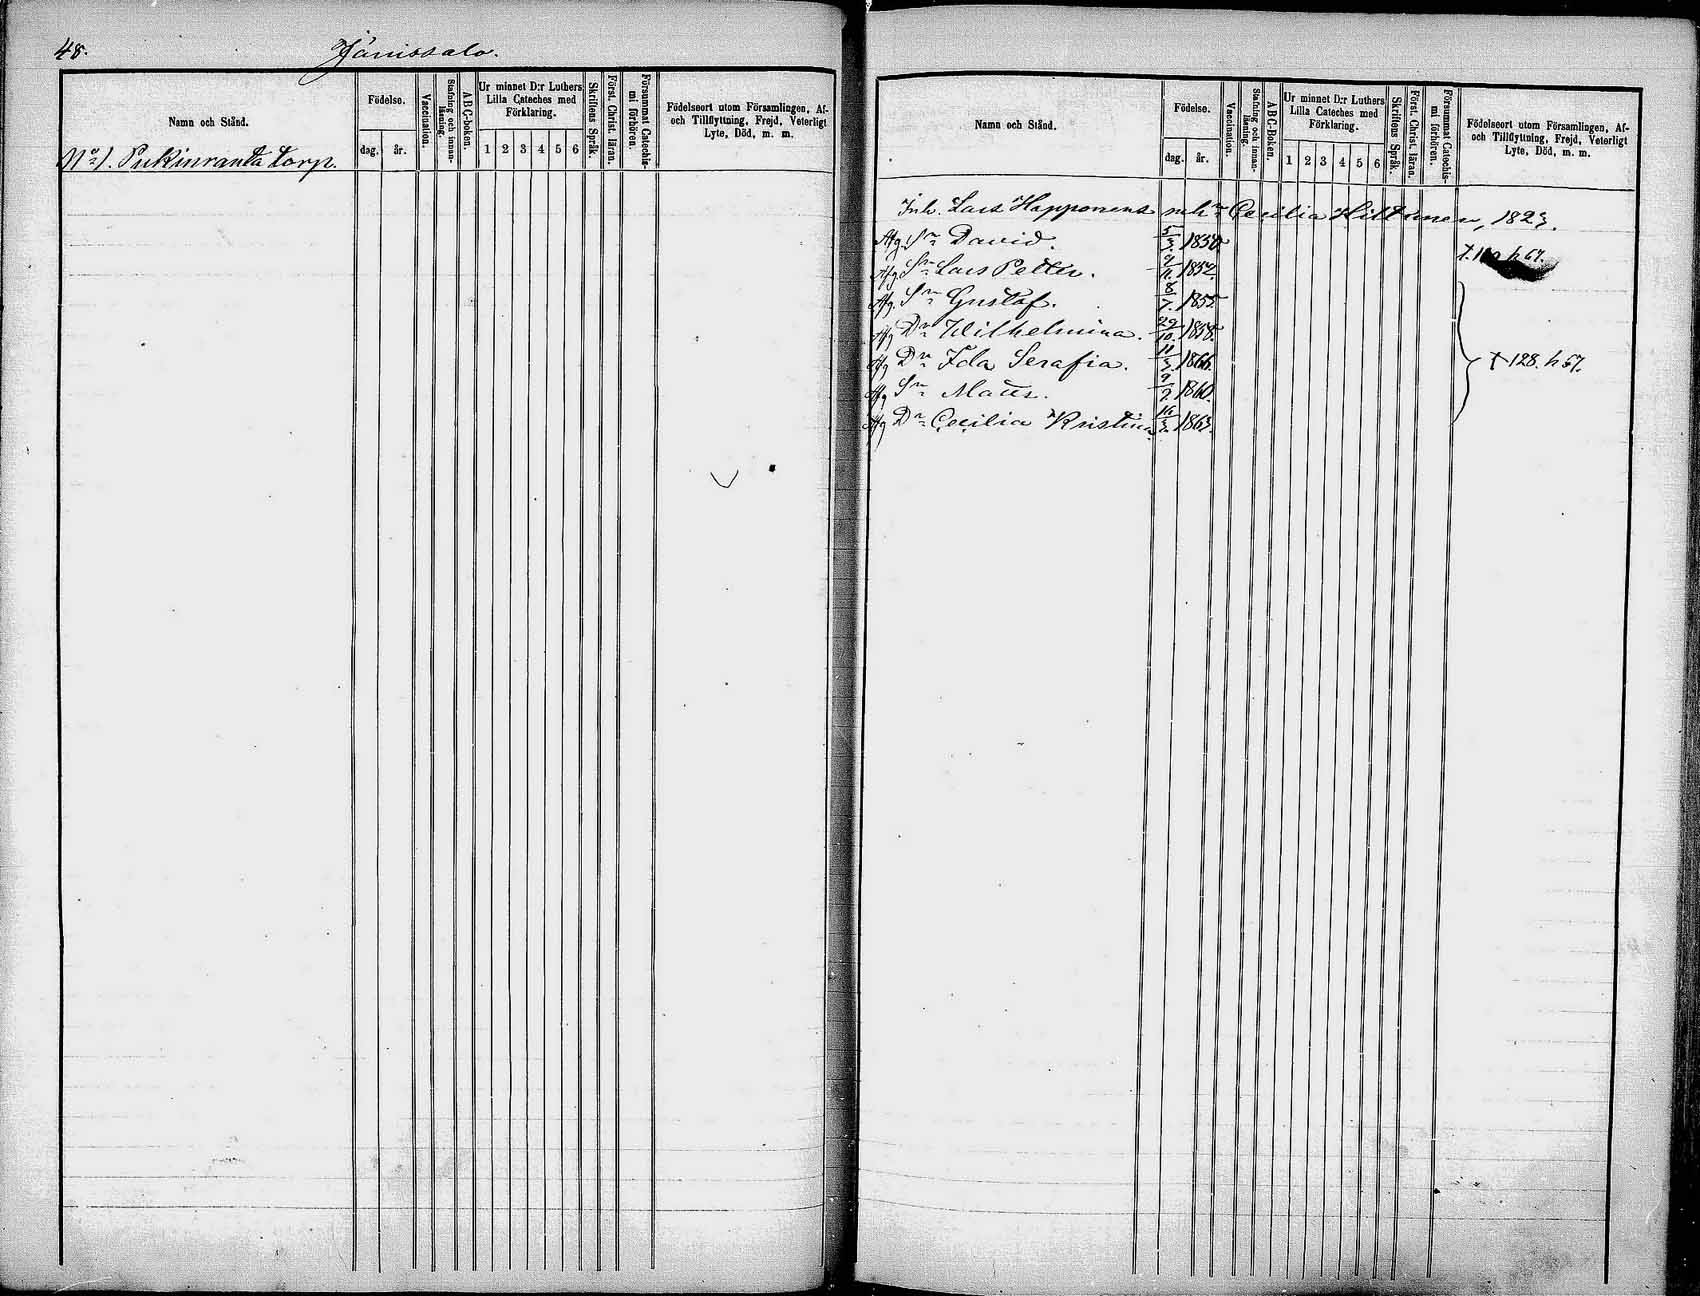 48. Jänissalo.
Namn och Stånd.
Födelse.
dag. år.
Vaccination.
Stafning och innan-läsning.
ABC-boken.
Ur minnet D:r Luthers
Lilla Cateches med
Förklaring.
1 2 3 4 5 6
Skriftens Språk.
Först. Christ. läran.
Försummat Catechis-
mi förhören.
Födelseort utom Församlingen, Af-
och Tillflyttning, Frejd, Veterligt
Lyte, Död, m. m.
No 1. Pukinranta torp.
Namn och Stånd.
Födelse.
dag. år.
Vaccination.
Stafning och innan-läsning.
ABC-Boken.
Ur minnet D:r Luthers
Lilla Cateches med
Förklaring.
1 2 3 4 5 6
Skriftens Språk.
Först. Christ. läran.
Försummat Catechis-
mi förhören.
Födelseort utom Församlingen, Af-
och Tillflyttning, Frejd, Veterligt
Lyte, Död, m. m.
Inh. Lars Happonens enka Cecilia Hiltunen, 1823.
Afg Sn David. 5/3. 1850
Afg Sn Lars Petter. 9/11. 1852
Afg. Sn Gustaf. 8/7. 1855
Afg Dn Wilhelmina. 29/10. 1858.
Afg Dn Ida Serafia. 11/3. 1866. 128. h 67.
Afg Sn Matts. 9/9. 1860.
Afg Dn Cecilia Kristina 16/3. 1863.